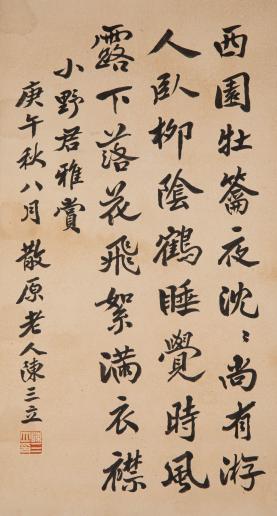 西園牡籥夜沈〻尚有游
人臥柳陰鶴睡覺時風
露下落花飛絮滿衣襟
小野君雅賞
庚午秋八月 散原老人陳三立